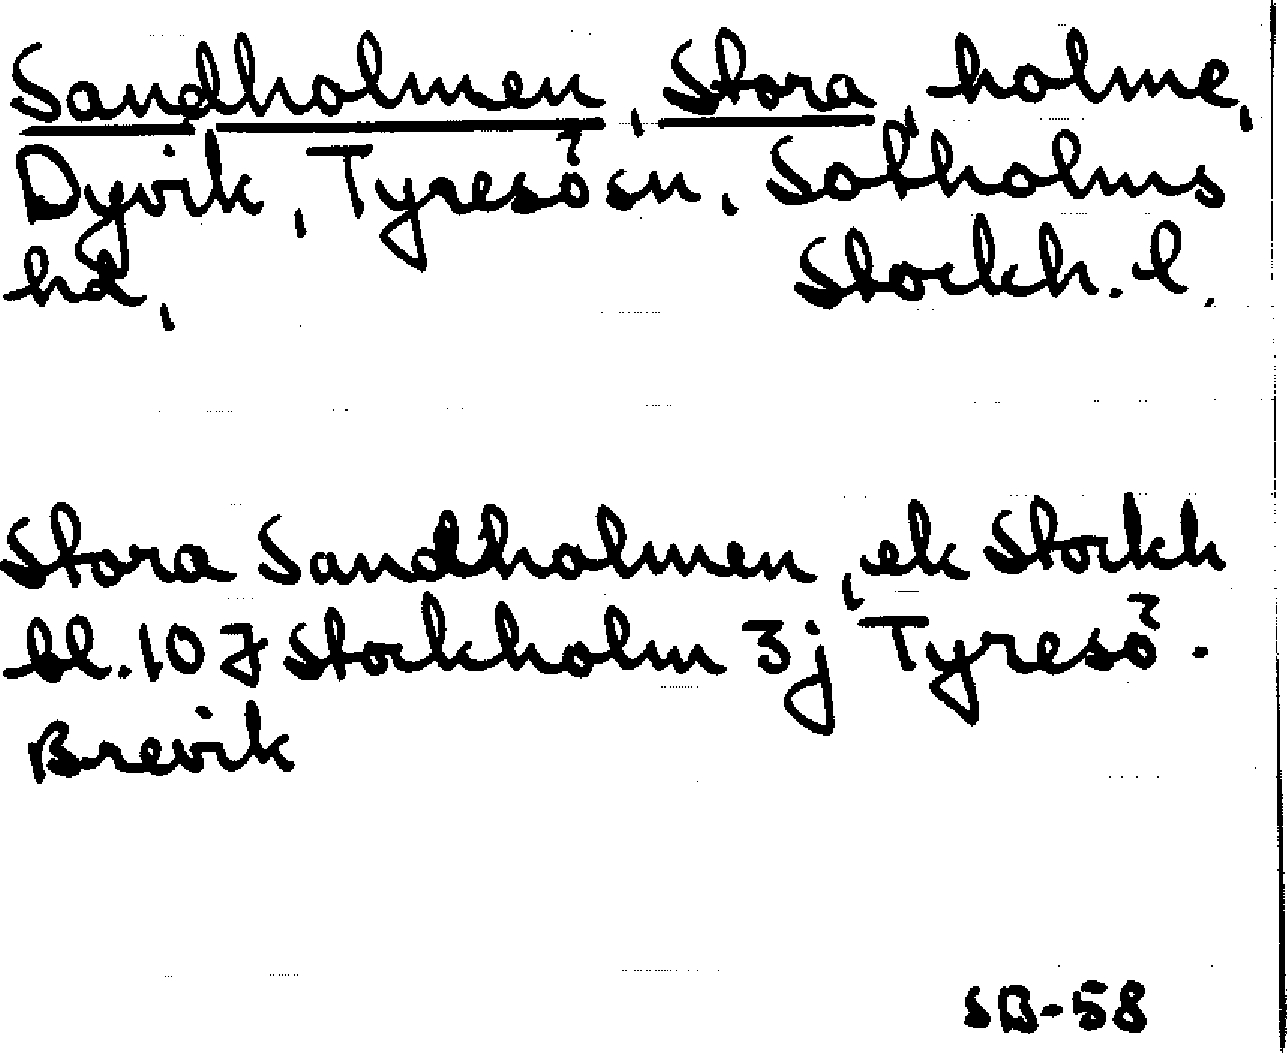 Sandholmen, Stora, holme,
Dyvik, Tyresö sn, Sotholms
hd, Stockh. l.
Stora Sandholmen, ek Stockh
bl. 107 Stockholm 3j Tyresö-
Brevik
SB-58